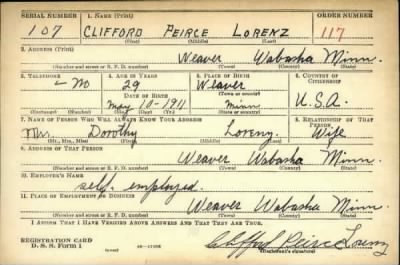 SERIAL NUMBER 1. NAME (Print) ORDER NUMBER
107 CLIFFORD PEIRCE LORENZ 117
(First) (Middle) (Last)
2. ADDRESS (Print)
Weaver Wabasha Minn.
(Number and street or R. F. D. number) (Town) (County) (State)
3. TELEPHONE 4. AGE IN YEARS 5. PLACE OF BIRTH 6. COUNTRY OF CITIZENSHIP
— no 29 Weaver
DATE OF BIRTH (Town or county)
May 10-1911 Minn U.S.A.
(Exchange) (Number) (Mo.) (Day) (Yr.) (State or country)
7. NAME OF PERSON WHO WILL ALWAYS KNOW YOUR ADDRESS 8. RELATIONSHIP OF THAT PERSON
Mrs. Dorothy Lorenz Wife
(Mr., Mrs., Miss) (First) (Middle) (Last)
9. ADDRESS OF THAT PERSON
Weaver Wabasha Minn.
(Number and street or R. F. D. number) (Town) (County) (State)
10. EMPLOYER'S NAME
self. employed.
11. PLACE OF EMPLOYMENT OR BUSINESS
Weaver Wabasha Minn.
(Number and street or R. F. D. number) (Town) (County) (State)
I AFFIRM THAT I HAVE VERIFIED ABOVE ANSWERS AND THAT THEY ARE TRUE.
REGISTRATION CARD
D. S. S. FORM 1
Clifford Peirce Lorenz
(Registrant's signature)